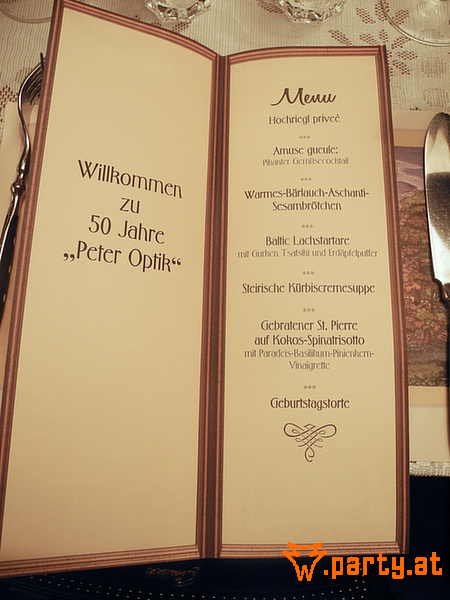 Willkommen
zu
50 Jahre
„Peter Optik“
Menu
Hochriegl priveč
***
Amuse gueule:
Pikanter Gemüsecocktail
***
Warmes-Bärlauch-Aschanti-
Sesambrötchen
***
Baltic Lachstartare
mit Gurken Tsatsiki und Erdäpfelputter
***
Steirische Kürbiscremesuppe
***
Gebratener St. Pierre
auf Kokos-Spinatrisotto
mit Paradeis-Basilikum-Pinienkern-
Vinaigrette
***
Geburtstagstorte
W.party.at